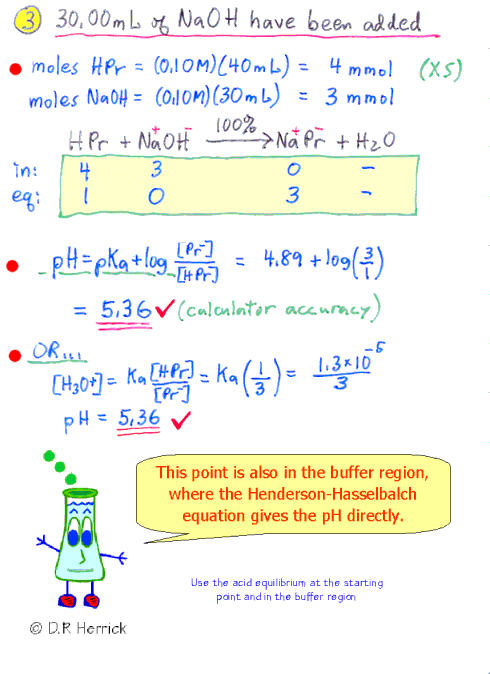 ③ 30.00 mL of NaOH have been added
• moles HPr = (0.10M)(40mL) = 4 mmol (XS)
moles NaOH = (0.10M)(30mL) = 3 mmol
HPr + Na⁺OH⁻ —100%→ Na⁺Pr⁻ + H₂O
in: 4 3 0 –
eq: 1 0 3 –
• pH = pKa + log [Pr⁻]/[HPr] = 4.89 + log(3/1)
= 5.36 ✓ (calculator accuracy)
• OR...
[H₃O⁺] = Ka [HPr]/[Pr⁻] = Ka (1/3) = 1.3×10⁻⁵/3
pH = 5.36 ✓
This point is also in the buffer region,
where the Henderson-Hasselbalch
equation gives the pH directly.
Use the acid equilibrium at the starting
point and in the buffer region
© D.R Herrick